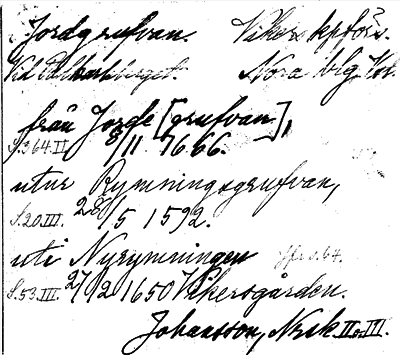 Jordgrufvan. Vikers kpförs.
Vid Dalkarlsberget. Nora blg. Vsl.
från Jorde [grufvan],
S.364.II. 8/11 1666.
utur Rymningsgrufvan,
S.20.III. 28/5 1592.
uti Nyrymningen Jfr s.64.
S.53.III. 27/2 1650 Vikersgården.
Johansson, Nrsk. II o. III.